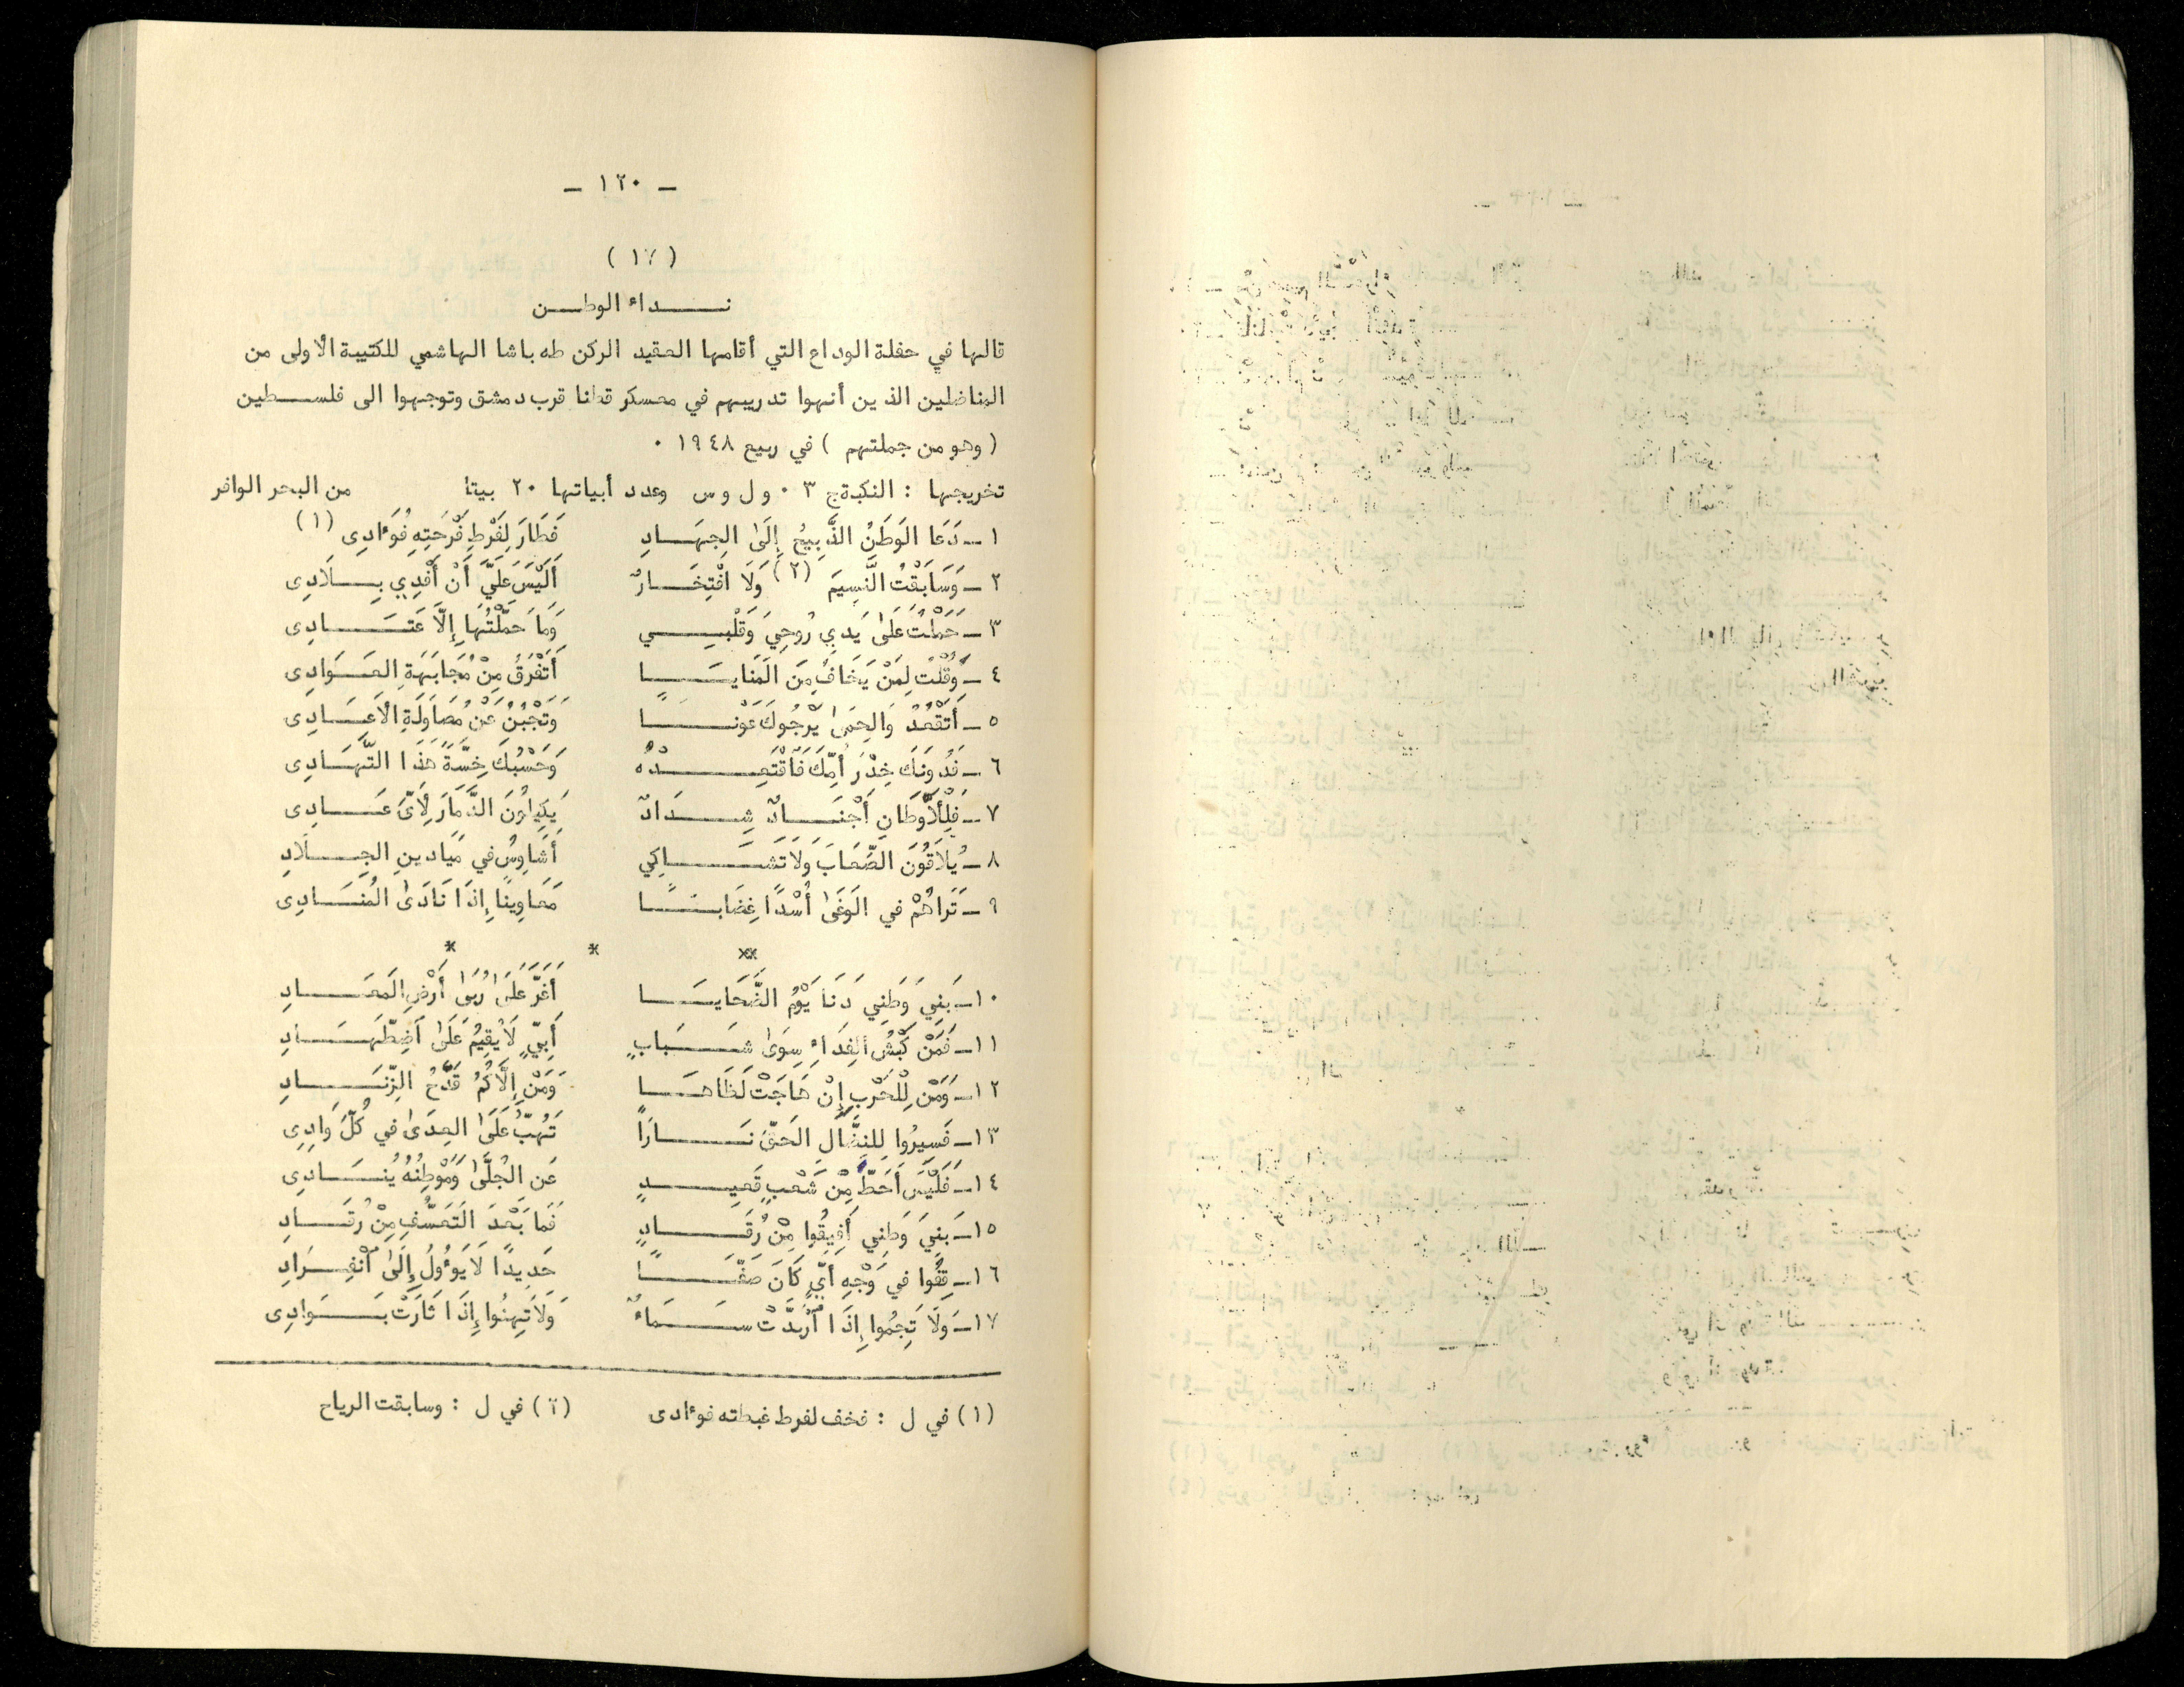 - ١٢٠ -
نداء الوطن
قالها في حفلة الوداع التي أقامها العقيد الركن طه باشا الهاشمي للكتيبة الأولى من
المناضلين الذين أنهوا تدريبهم في معسكر قطنا قرب دمشق وتوجهوا الى فلسطين
( وهو من جملتهم ) في ربيع ١٩٤٨ ٠
تخريجها : النكبة ج ٣ ٠ و ل و س وعدد أبياتها ٢٠ بيتا من البحر الوافر
١ - دَعَا الوَطَنُ الذَّبِيحُ إِلَى الجِهَادِ فَطَارَ لِفَرْطِ فَرْحَتِهِ فُؤَادِى (١)
٢ - وَسَابَقْتُ النَّسِيمَ (٢) وَلَا افْتِخَارٌ أَلَيْسَ عَلَيَّ أَنْ أَفْدِي بِلَادِى
٣ - حَمَلْتُ عَلَى يَدِي رُوحِي وَقَلْبِي وَمَا حَمَّلْتُهَا إِلَّا عَتَادِى
٤ - وَقُلْتُ لِمَنْ يَخَافُ مِنَ المَنَايَا أَتَفْرَقُ مِنْ مُجَابَهَةِ العَوَادِى
٥ - أَتَقْعُدُ وَالحِمَى يَرْجُوكَ عَوْنًا وَتَجْبُنُ عَنْ مُصَاوَلَةِ الأَعَادِى
٦ - فَدُونَكَ خِدْرَ أُمِّكَ فَاقْتَعِدْهُ وَحَسْبُكَ خِسَّةً هَذَا التَّهَادِى
٧ - فَلِلْأَوْطَانِ أَجْنَادٌ شِدَادٌ يَكِيلُونَ الدَّمَارَ لِأَيِّ عَادِى
٨ - يُلَاقُونَ الصِّعَابَ وَلَا تَشَاكِي أَشَاوِسُ في مَيَادِينِ الجِلَادِ
٩ - تَرَاهُمْ في الوَغَى أُسْدًا غِضَابًا مَعَاوِينًا إِذَا نَادَى المُنَادِى
** * *
١٠ - بَنِي وَطَنِي دَنَا يَوْمُ الضَّحَايَا أَغَرَّ عَلَى رُبَى أَرْضِ المَعَادِ
١١ - فَمَنْ كَبْشُ الفِدَاءِ سِوَى شَبَابٍ أَبِيٍّ لَا يُقِيمُ عَلَى اضْطِّهَادِ
١٢ - وَمَنْ لِلْحَرْبِ إِنْ هَاجَتْ لَظَاهَا وَمَنْ إِلَّاكُمُ قَدْحُ الزِّنَادِ
١٣ - فَسِيرُوا لِلنِّضَالِ الحَقِّ نَارًا تَهُبُّ عَلَى العِدَى في كُلِّ وَادِى
١٤ - فَلَيْسَ أَحَطَّ مِنْ شَعْبٍ قَعِيدٍ عَنِ الجُلَّى وَمَوْطِنُهُ يُنَادِى
١٥ - بَنِي وَطَنِي أَفِيقُوا مِنْ رُقَادٍ فَمَا بَعْدَ التَعَسُّفِ مِنْ رُقَادِ
١٦ - قِفُوا في وَجْهِ أَيٍّ كَانَ صَفًّا حَدِيدًا لَا يَؤُولُ إِلَى انْفِرَادِ
١٧ - وَلَا تَجِمُوا إِذَا ارْبَدَّتْ سَمَاءٌ وَلَا تَهِنُوا إِذَا ثَارَتْ بَوَادِى
(١) في ل : فخف لفرط غبطته فؤادى (٢) في ل : وسابقت الرياح